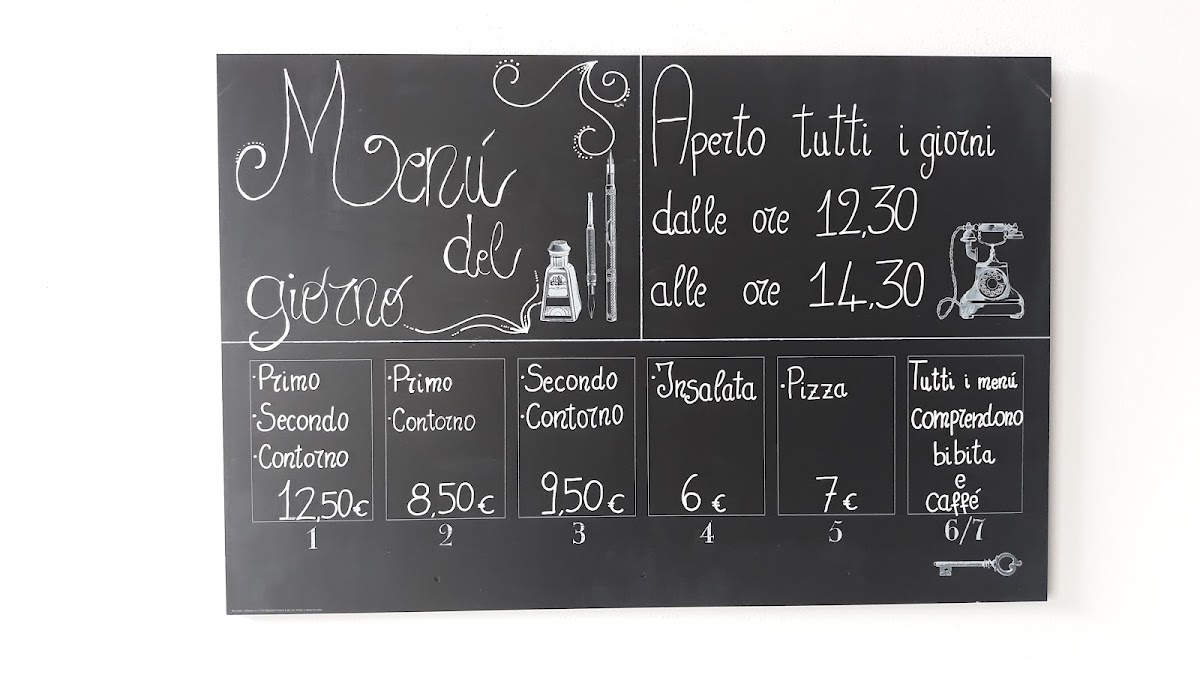 Menú
del
giorno
Aperto tutti i giorni
dalle ore 12,30
alle ore 14,30
·Primo
·Secondo
·Contorno
12,50€
1
·Primo
·Contorno
8,50€
2
·Secondo
·Contorno
9,50€
3
·Insalata
6€
4
·Pizza
7€
5
Tutti i menú
comprendono
bibita
e
caffé
6/7